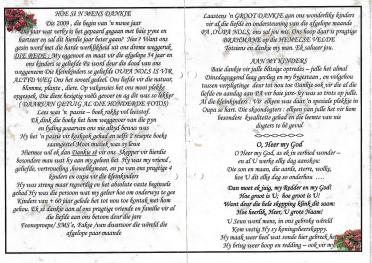 HOE SÊ N MENS DANKIE
Die 2009, die begin van 'n nuwe jaar
Die jaar wat verby is het gepaard gegaan met baie pyne en
hartseer en sal dit hierdie jaar beter gaan? Nee! Want ons
gesin word met die harde werklikheid uit ons drome weggeruk
DIE REDE: My eggenoot en maat vir die afgelope 54 jaar en
ons kinders se geliefde Pa word deur die dood van ons
weggeneem Die kleinkinders se geliefde OUPA NOLS IS VIR
ALTYD WEG Ons het soveel gedeel. Ons liefde vir die natuur,
blomme, plante, diere. Op vakansies het ons mooi plekke
opgesoek, Die diere besigtig volk genoet en op die was so lekker
(DAARVAN GETUIG AL DIE HONDERDE FOTOS)
Lees was 'n passie – boek rakke vol leesstof.
Ek dink die boeke het hom weggevoer van die pyn
en lyding waarvan ons nie altyd bewus was
Hy het 'n passie vir kookgek gehad en selfs 3 resepte boeke
saamgestel Mooi musiek was sy keuse
Hiermee wil ek dan Dankie sê vir ons Skepper vir hierdie
besondere man wat hy aan my geleen het. Hy was my vriend,
geliefde, vertroueling, huweliksmaat, en pa van ons pragtige 4
kinders en oupa vir die kleinkinders
Hy was streng maar regverdig en het absolute vaste beginsels
gehad Hy was die persoon wat my geleer hoe om ondertoe te gee
Kinders van + 60 jaar gelede het tot nou toe kontak met hom
gehou. Ek sê dankie aan al ons pragtige vriende en familie vir al
die liefde aan ons betoon deur die jare
Foonoproepe/ SMS'e, Fakse van dwarsoor die wêreld die
afgelope paar maande
Laastens 'n GROOT DANKIE aan ons wonderlike kinders
vir al die liefde en ondersteuning van die afgelope maande
PA, OUPA NOLS, ons sal jou mis. Ons hoop daar is pragtige
BRAHMANE op die HEMELSE VELDE
Totsiens en dankie my man. Ek salueer jou.
AAN MY KINDERS
Baie dankie vir julle blinge optredes – julle het almal
Dinsdagoggend laag gelieg en by bygestaan, en volgehou
tussen verpligtinge deur tot nou toe Dankie ook vir die al die
liefde en aandag aan PA vir baie jare- hy was so trots op julle.
Al die kleinkinders: Vir elkeen was daar 'n spesiale plekkie in
Oupa se hart. Die skoondogters: elkeen van julle het vir hom
besondere kwaliteit gehad en die leemte van nie
dogters te hê gevul
O, Heer my God
O Heer my God, as ek in eerbied wonder –
en al U werke elke dag aanskou:
Die son en maane, die aarde, sterre, wolke,
hoe U dit elke dag so onderhou ....
Dan moet ek juig, my Redder en my God!
Hoe groot is U; hoe groot is U!
Want deur die hele skepping klink dit saam:
Hoe heerlik, Heer, U grote Naam!
U Seun word mens, in ons gebreekte wêreld
Kom vestig Hy sy koningsheerskappy.
Hy maak weer heel wat sonde hier gebreek het
Hy bring weer hoop en redding – ook vir my